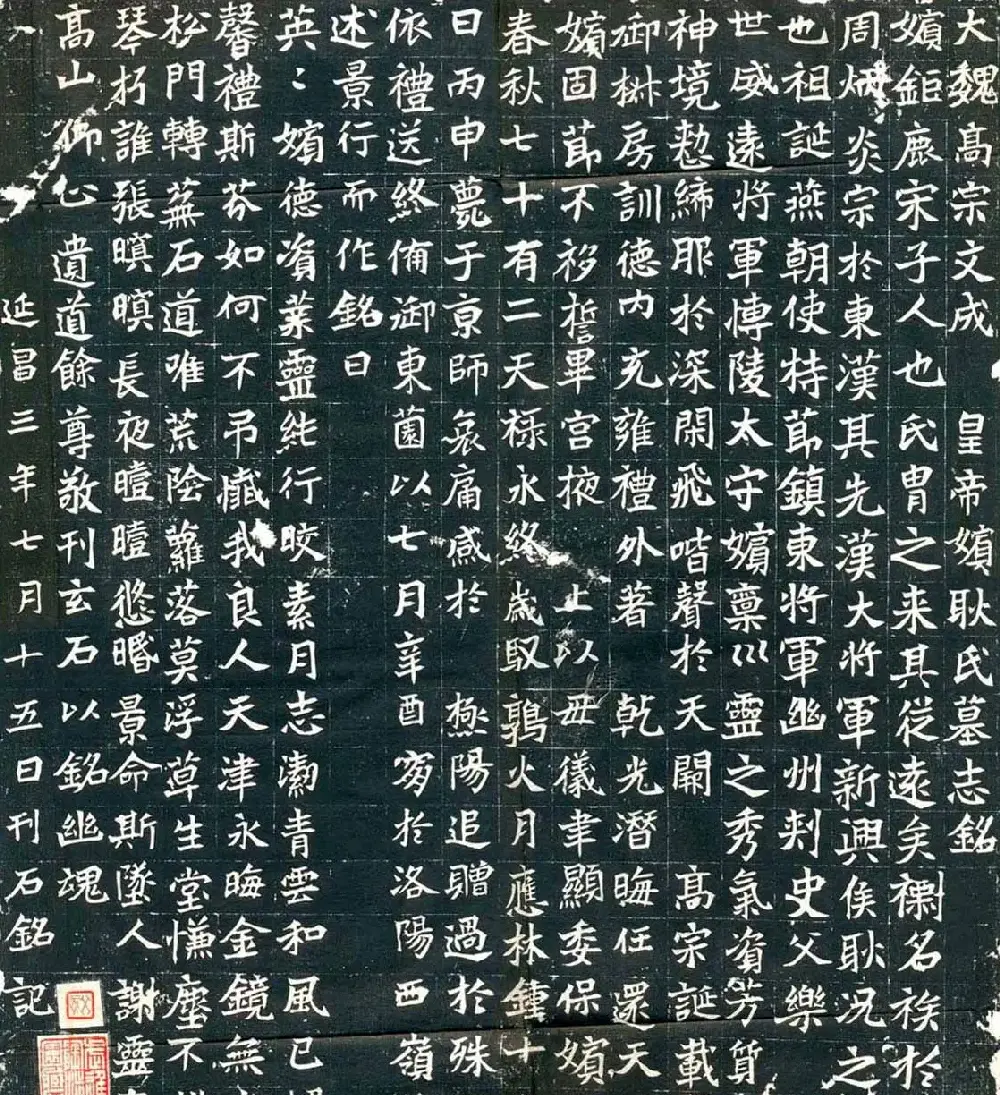 大魏高宗文成 皇帝嬪耿氏墓志銘
嬪鉅鹿宋子人也氏冑之来其従遠矣名族於
周炳炎宗於東漢其先漢大將軍新興侯耿況之
也祖誕燕朝使持莭鎮東將軍幽州刾史父樂
世威遠將軍愽陵太守嬪禀巛靈之秀氣資芳質
神境締於深閑飛喈聲於天闕 高宗誕載
御樹房訓德内充雍禮外著 乾光潛晦任還天
嬪固莭不移誓畢宮掖 上以毋儀聿顯委保嬪
春秋七十有二天禄永終歲馭鶉火月應林鍾十
日丙申薨于京師哀痛慼於 陽追贈過於殊
依禮送終備御東園以七月辛酉窆於洛陽西嶺
述景行而作銘曰
英〻嬪德資業靈純行皎素月志潔青雲和風已
馨禮斯芬如何不吊殲我良人天津永晦金鏡無
松門轉蕪石道唯荒陰蘿落莫浮草生堂慊塵不
琴朽誰張暝暝長夜曀曀悠景命斯墜人謝靈
高山仰止遺道餘尊敬刊玄石以銘幽魂
延昌三年七月十五日刊石銘記